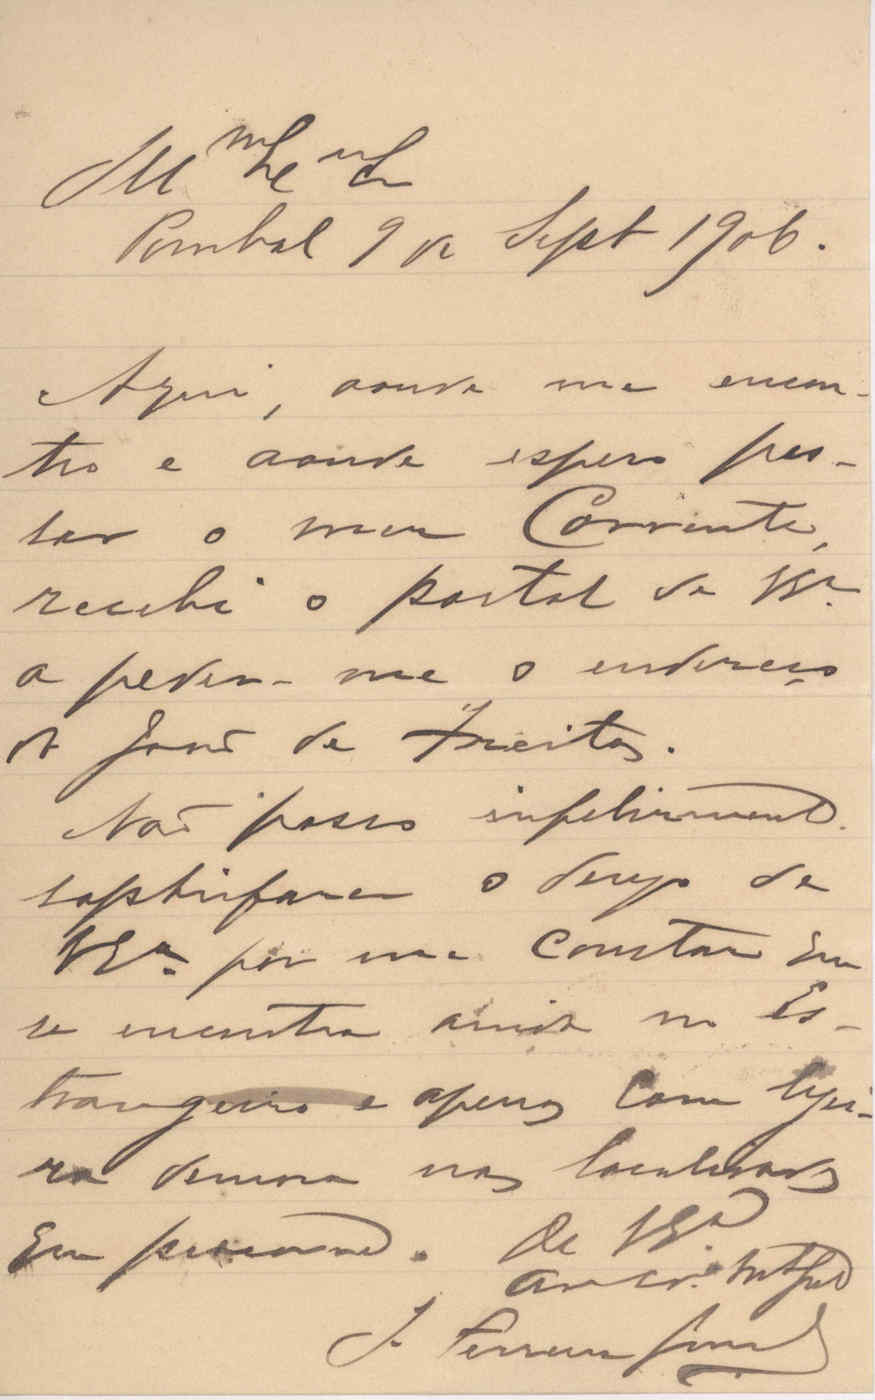 Pombal 9 de Sept 1906.
Aqui, aonde me encon-
tro e aonde espero pas-
sar o meu Corrente,
recebi o postal de VEª.
a pedir-me o endereço
de João de Freitas.
Não posso infelizmente
satisfazer o desejo de
VEª. por me constar que
se encontra ainda no Es-
trangeiro e apenas com ligei-
ra demora nas localidades
que percorre. De VEª
J. Ferreira